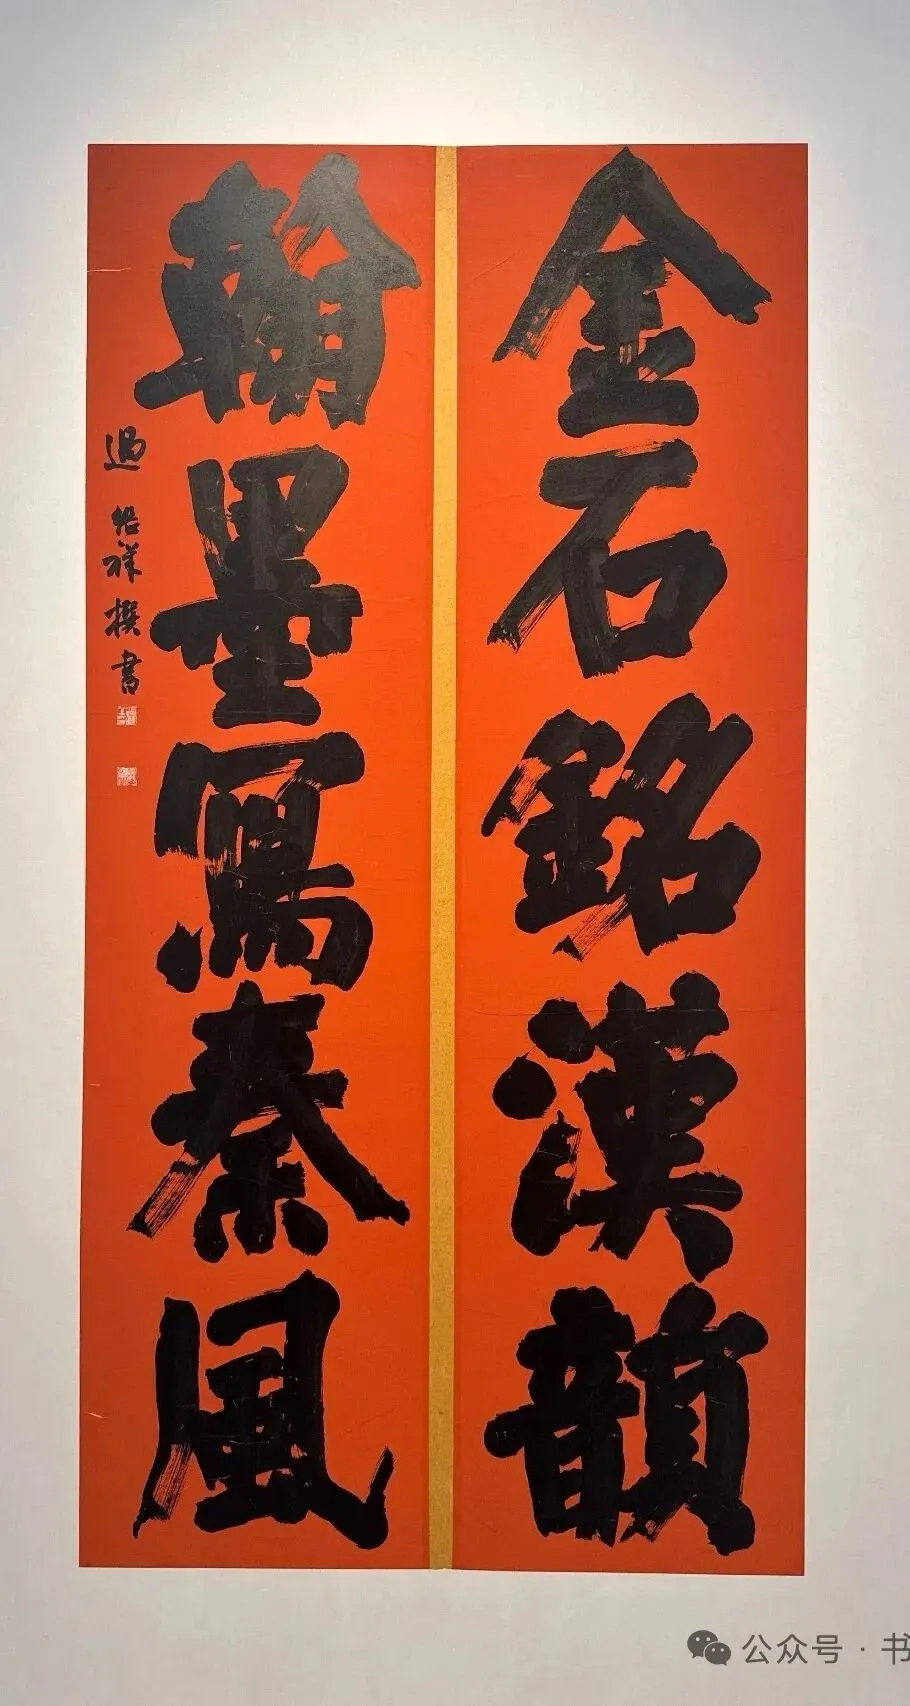 金石銘漢韻
翰墨寫秦風
過紹祥撰書
公众号 · 书